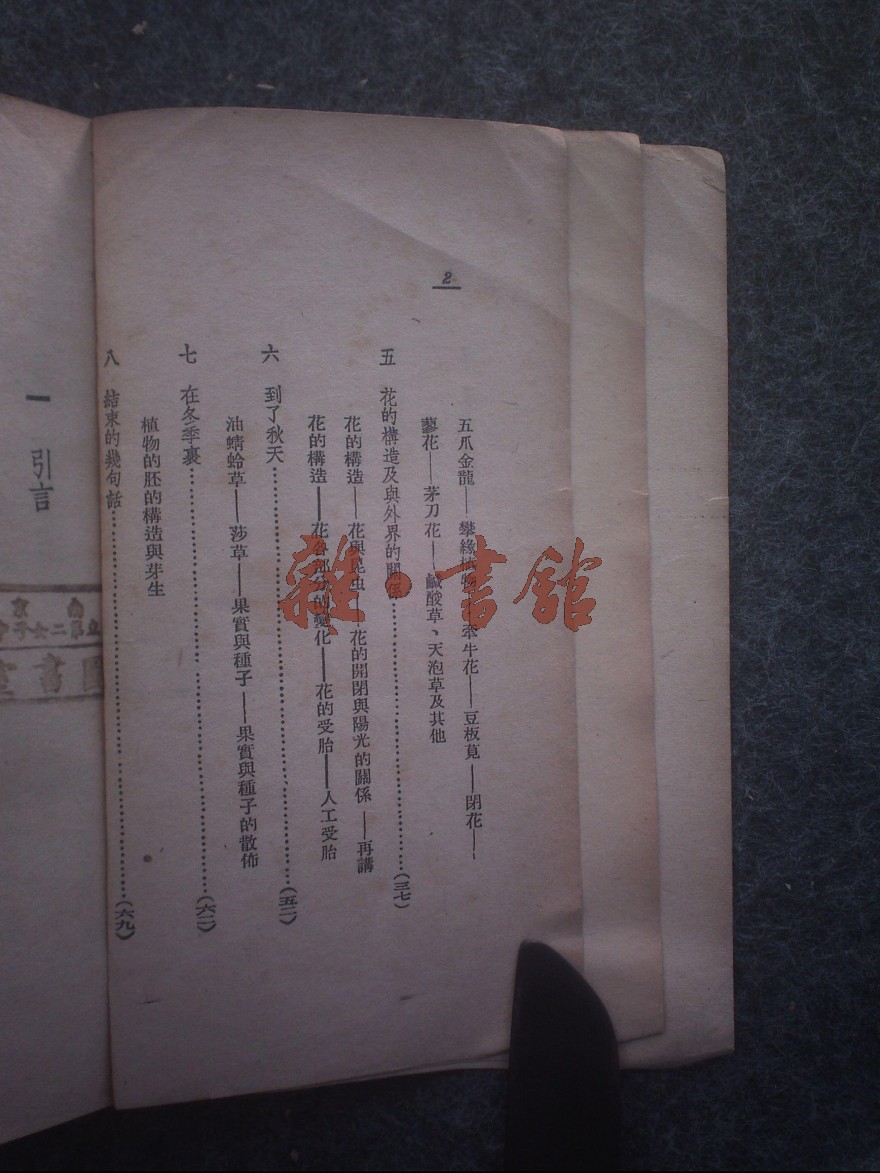 2
五爪金龍——攀緣植物——牽牛花——豆板莧——閉花——
蓼花——茅刀花——鹹酸草、天泡草及其他
五 花的構造及與外界的關係……(三七)
花的構造——花與昆虫——花的開閉與陽光的關係——再講
花的構造——花各部分的變化——花的受胎——人工受胎
六 到了秋天……(五二)
油蜻蛉草——莎草——果實與種子——果實與種子的散佈
七 在冬季裏……(六二)
植物的胚的構造與芽生
八 結束的幾句話……(六九)
一 引言
第二女子
圖書室
雜·書館